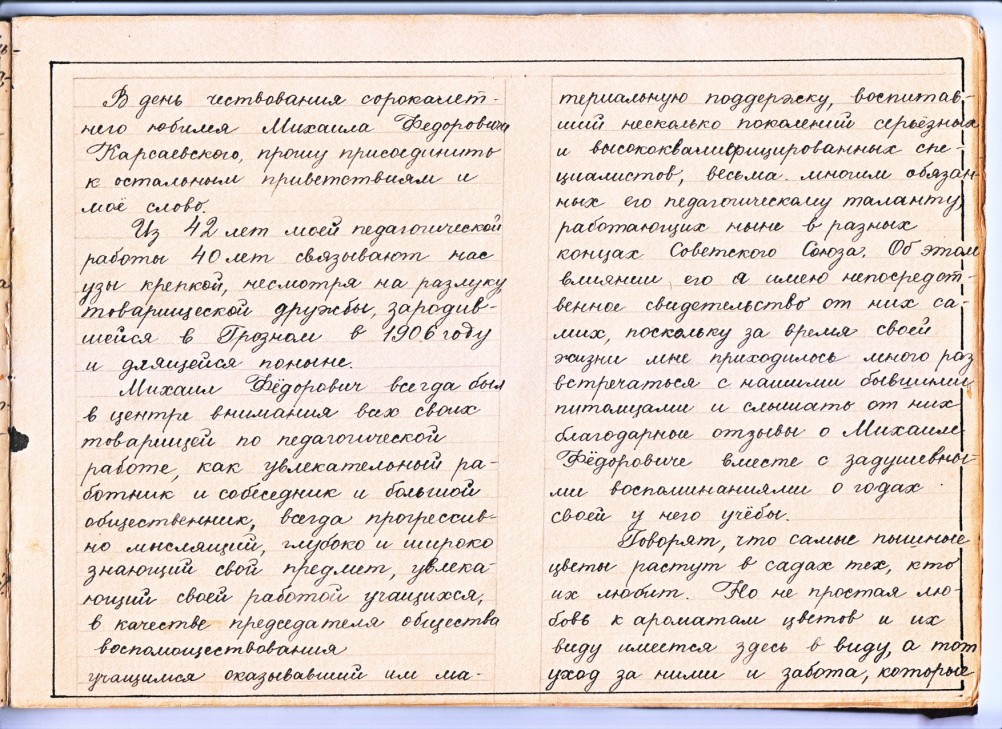 В день чествования сорокалет-
него юбилея Михаила Федоровича
Карсаевского, прошу присоединить
к остальным приветствиям и
моё слово.
Из 42 лет моей педагогической
работы 40 лет связывают нас
узы крепкой, несмотря на разлуку,
товарищеской дружбы, зародив-
шейся в Грозном в 1906 году
и длящейся поныне.
Михаил Фёдорович всегда был
в центре внимания всех своих
товарищей по педагогической
работе, как увлекательный ра-
ботник и собеседник и большой
общественник, всегда прогрессив-
но мыслящий, глубоко и широко
знающий свой предмет, увлека-
ющий своей работой учащихся,
в качестве председателя общества
воспомоществования
учащимся оказывавший им ма-
териальную поддержку, воспитав-
ший несколько поколений серьёзных
и высококвалифицированных спе-
циалистов, весьма многим обязан-
ных его педагогическому таланту,
работающих ныне в разных
концах Советского Союза. Об этом
влиянии его я имею непосредст-
венное свидетельство от них са-
мих, поскольку за время своей
жизни мне приходилось много раз
встречаться с нашими бывшими
питомцами и слышать от них
благодарные отзывы о Михаиле
Фёдоровиче вместе с задушевны-
ми воспоминаниями о годах
своей у него учёбы.
Говорят, что самые пышные
цветы растут в садах тех, кто
их любит. Но не простая лю-
бовь к ароматам цветов и их
виду имеется здесь в виду, а тот
уход за ними и забота, которые